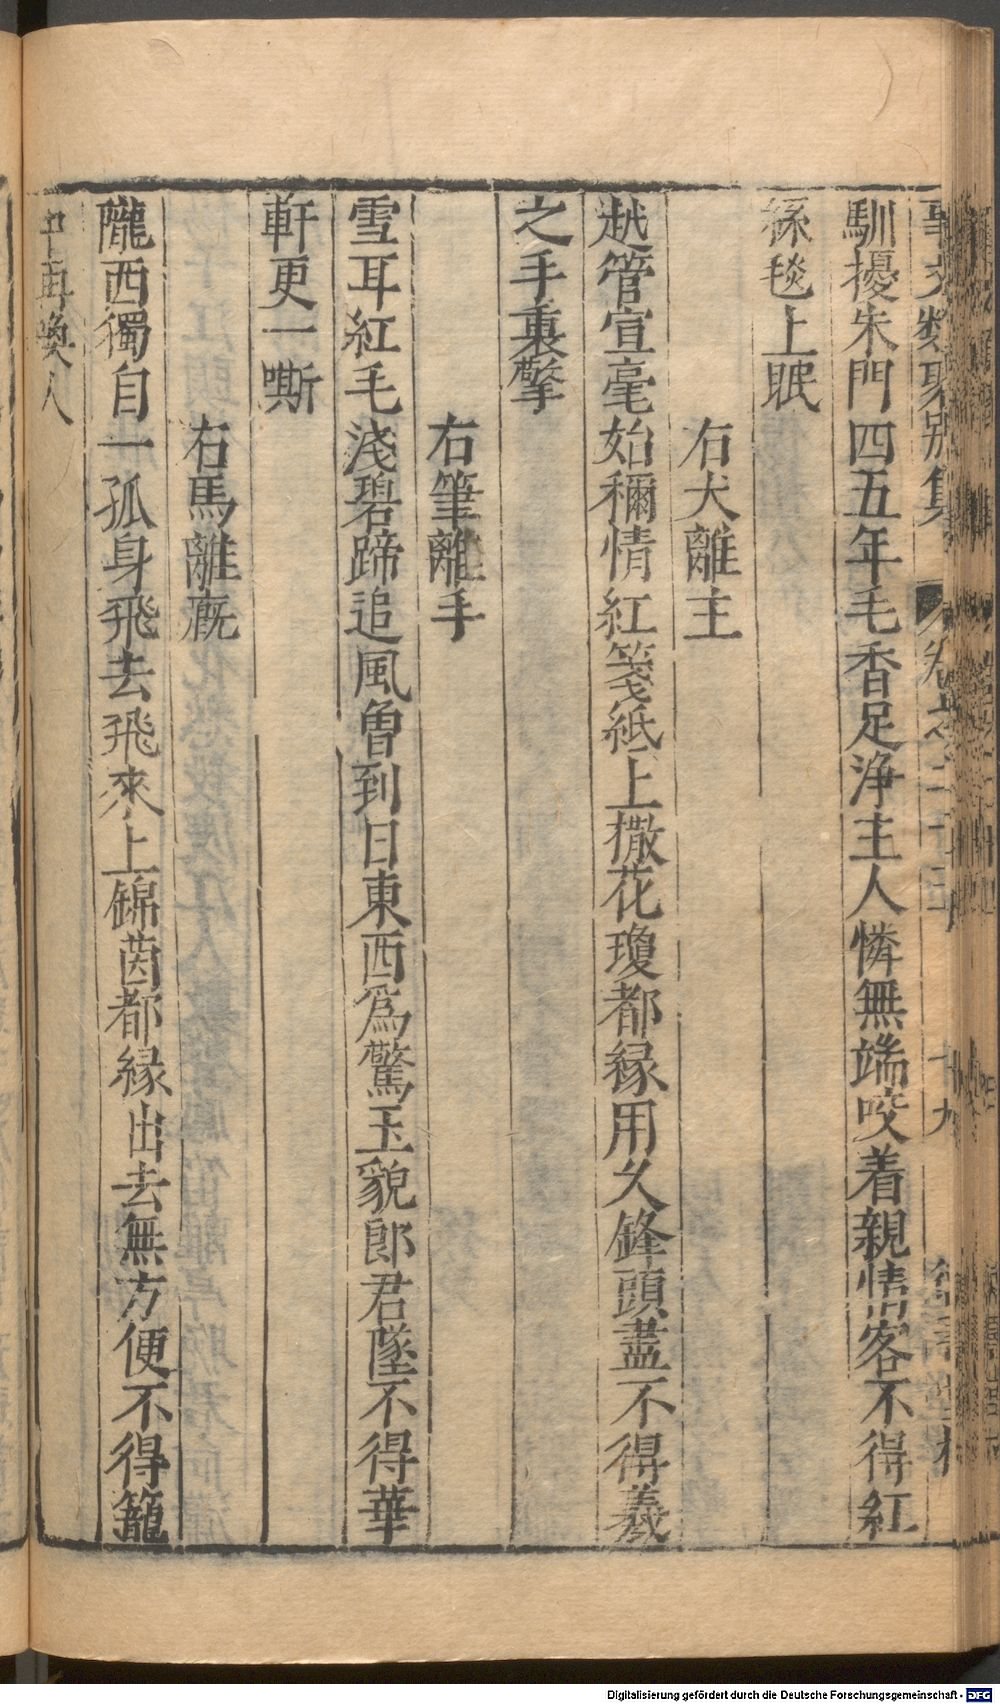 事文類聚別集 卷之二十五 十九
馴擾朱門四五年毛香足浄主人憐無端咬着親情客不得紅
絲毯上眠
右犬離主
越管宣毫始稱情紅箋紙上撒花瓊都緣用久鋒頭盡不得羲
之手裏擎
右筆離手
雪耳紅毛淺碧蹄追風曾到日東西為驚玉貌郎君墜不得華
軒更一嘶
右馬離廐
隴西獨自一孤身飛去飛來上錦茵都緣出去無方便不得籠
中再喚人
Digitalisierung gefördert durch die Deutsche Forschungsgemeinschaft - DFG